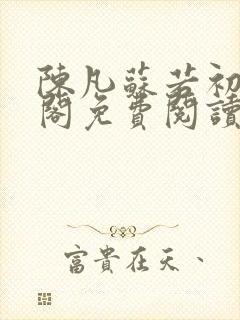 陳凡蘇若初
閣免費閱讀
富貴在天、